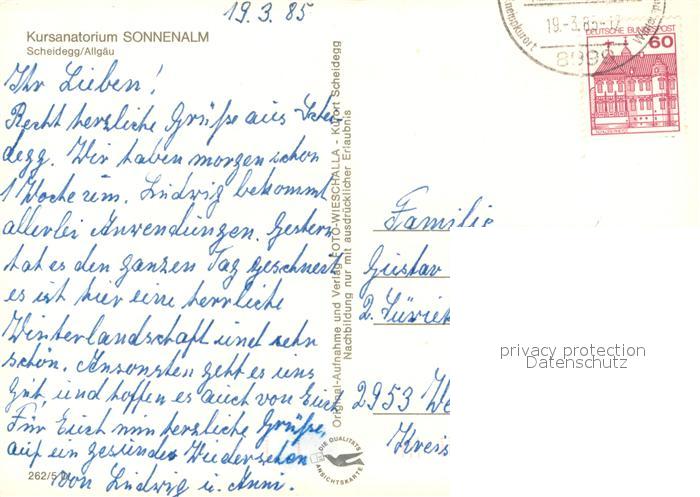 19.3.85
Kursanatorium SONNENALM
Scheidegg/Allgäu
Ihr Lieben!
Recht herzliche Grüße aus Schei-
degg. Wir haben morgen schon
1 Woche um. Ludwig bekommt
allerlei Anwendungen. Gestern
hat es den ganzen Tag geschneit
es ist hier eine herrliche
Winterlandschaft und sehr
schön. Ansonsten geht es uns
gut, und hoffen es auch von Euch
Für Euch nun herzliche Grüße,
auf ein gesundes Wiedersehen
von Ludwig u. Anni.
262/5
Original-Aufnahme und Verlag FOTO-WIESCHALLA - Kurort Scheidegg
Nachbildung nur mit ausdrücklicher Erlaubnis
DIE QUALITÄTS
ANSICHTSKARTE
19.-3.85-17
8999
DEUTSCHE BUNDESPOST
60
Familie
Gustav
2. Züriet
2953
Kreis
privacy protection
Datenschutz